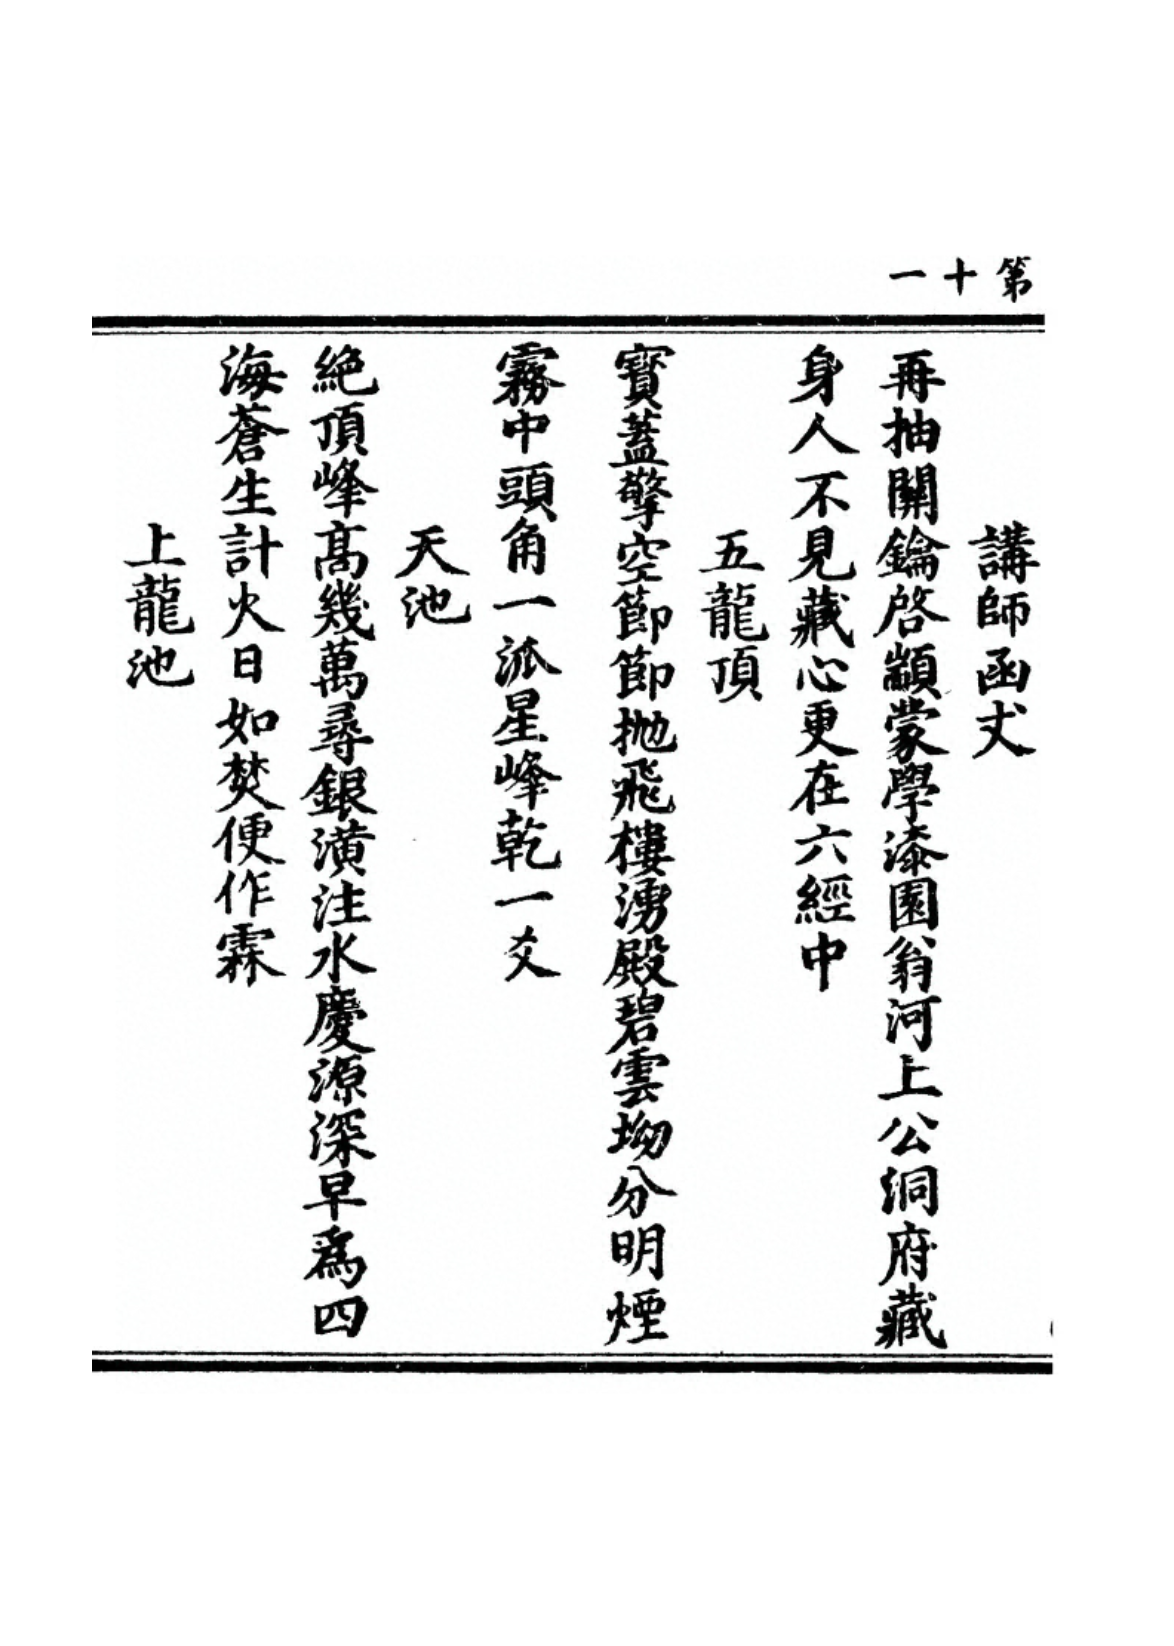 第十一
講師函丈
再抽關鑰啓顓蒙學漆園翁河上公洞府藏
身人不見藏心更在六經中
五龍頂
寶蓋擎空節節拋飛樓湧殿碧雲坳分明煙
霧中頭角一派星峰乾一爻
天池
絶頂峰高幾萬尋銀潢注水慶源深早爲四
海蒼生計火日如焚便作霖
上龍池